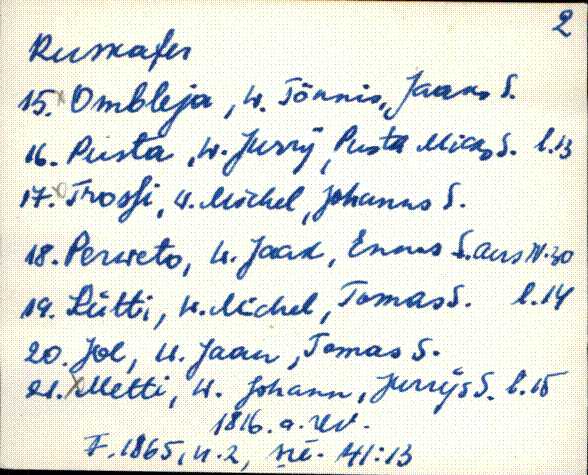 2
Rusnafer
15. Ombleja, w. Tönnis, Jaans S.
16. Pusta, w. Jurry, Pusta Micks S. l.13
17. Trossi, w. Michel, Johanns S.
18. Perweto, w. Jaak, Ennus S. aus N. 30
19. Lütti, w. Michel, Tomas S. l.14
20. Jol, w. Jaan, Tomas S.
21. Metti, w. Johann, Jurrys S. l.15
1816. a. rev.
F. 1865, n. 2, 41:13